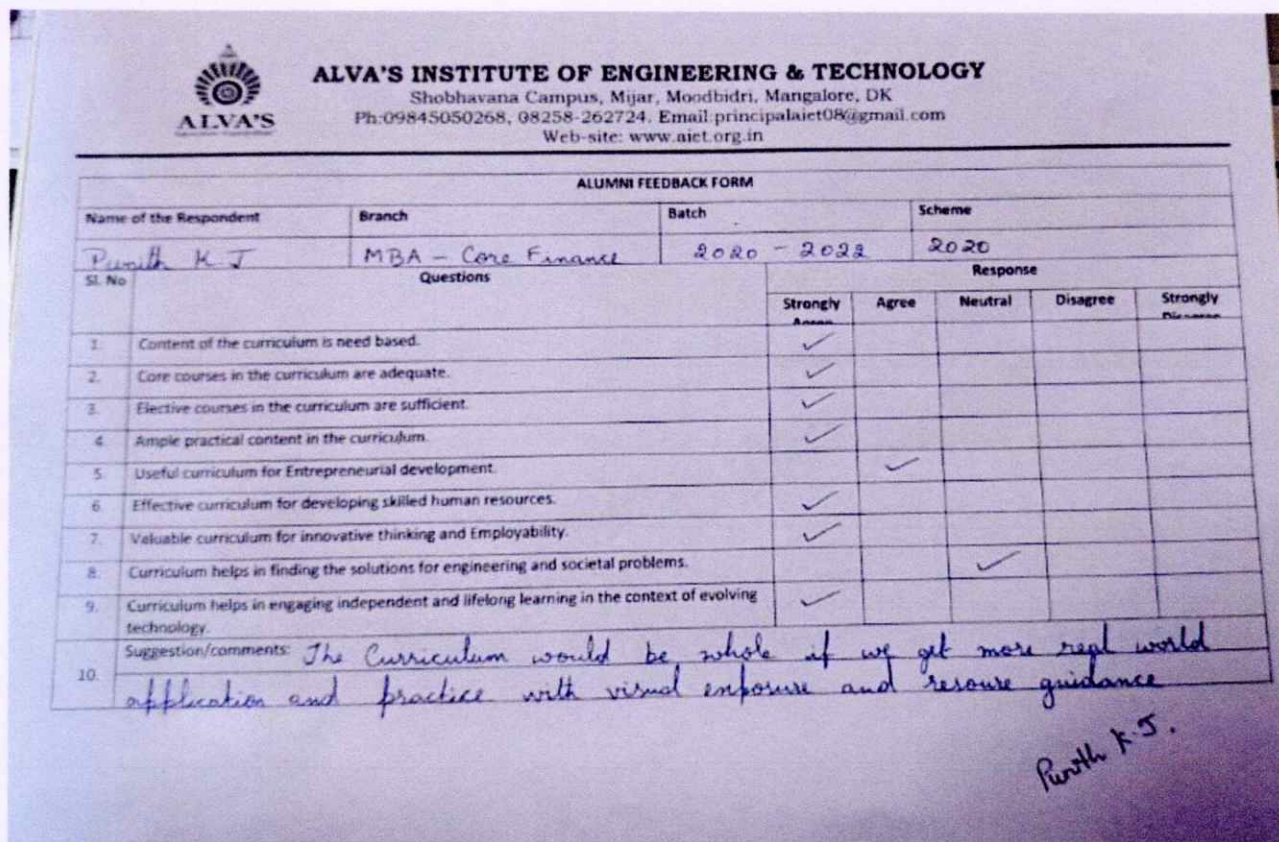 ALVA'S INSTITUTE OF ENGINEERING & TECHNOLOGY
Shobhavana Campus, Mijar, Moodbidri, Mangalore, DK
ALVA'S
Ph:09845050268, 08258-262724. Email:principalaiet08@gmail.com
Web-site: www.aiet.org.in
ALUMNI FEEDBACK FORM
Name of the Respondent Branch Batch Scheme
Punith K J MBA - Core Finance 2020 - 2022 2020
Sl. No Questions Response
Strongly Agree Agree Neutral Disagree Strongly Disagree
1. Content of the curriculum is need based. ✓
2. Core courses in the curriculum are adequate. ✓
3. Elective courses in the curriculum are sufficient. ✓
4. Ample practical content in the curriculum. ✓
5. Useful curriculum for Entrepreneurial development. ✓
6. Effective curriculum for developing skilled human resources. ✓
7. Valuable curriculum for innovative thinking and Employability. ✓
8. Curriculum helps in finding the solutions for engineering and societal problems. ✓
9. Curriculum helps in engaging independent and lifelong learning in the context of evolving
technology. ✓
10. Suggestion/comments: The Curriculum would be whole if we get more real world
application and practice with visual exposure and resoure guidance
Punith K.J.